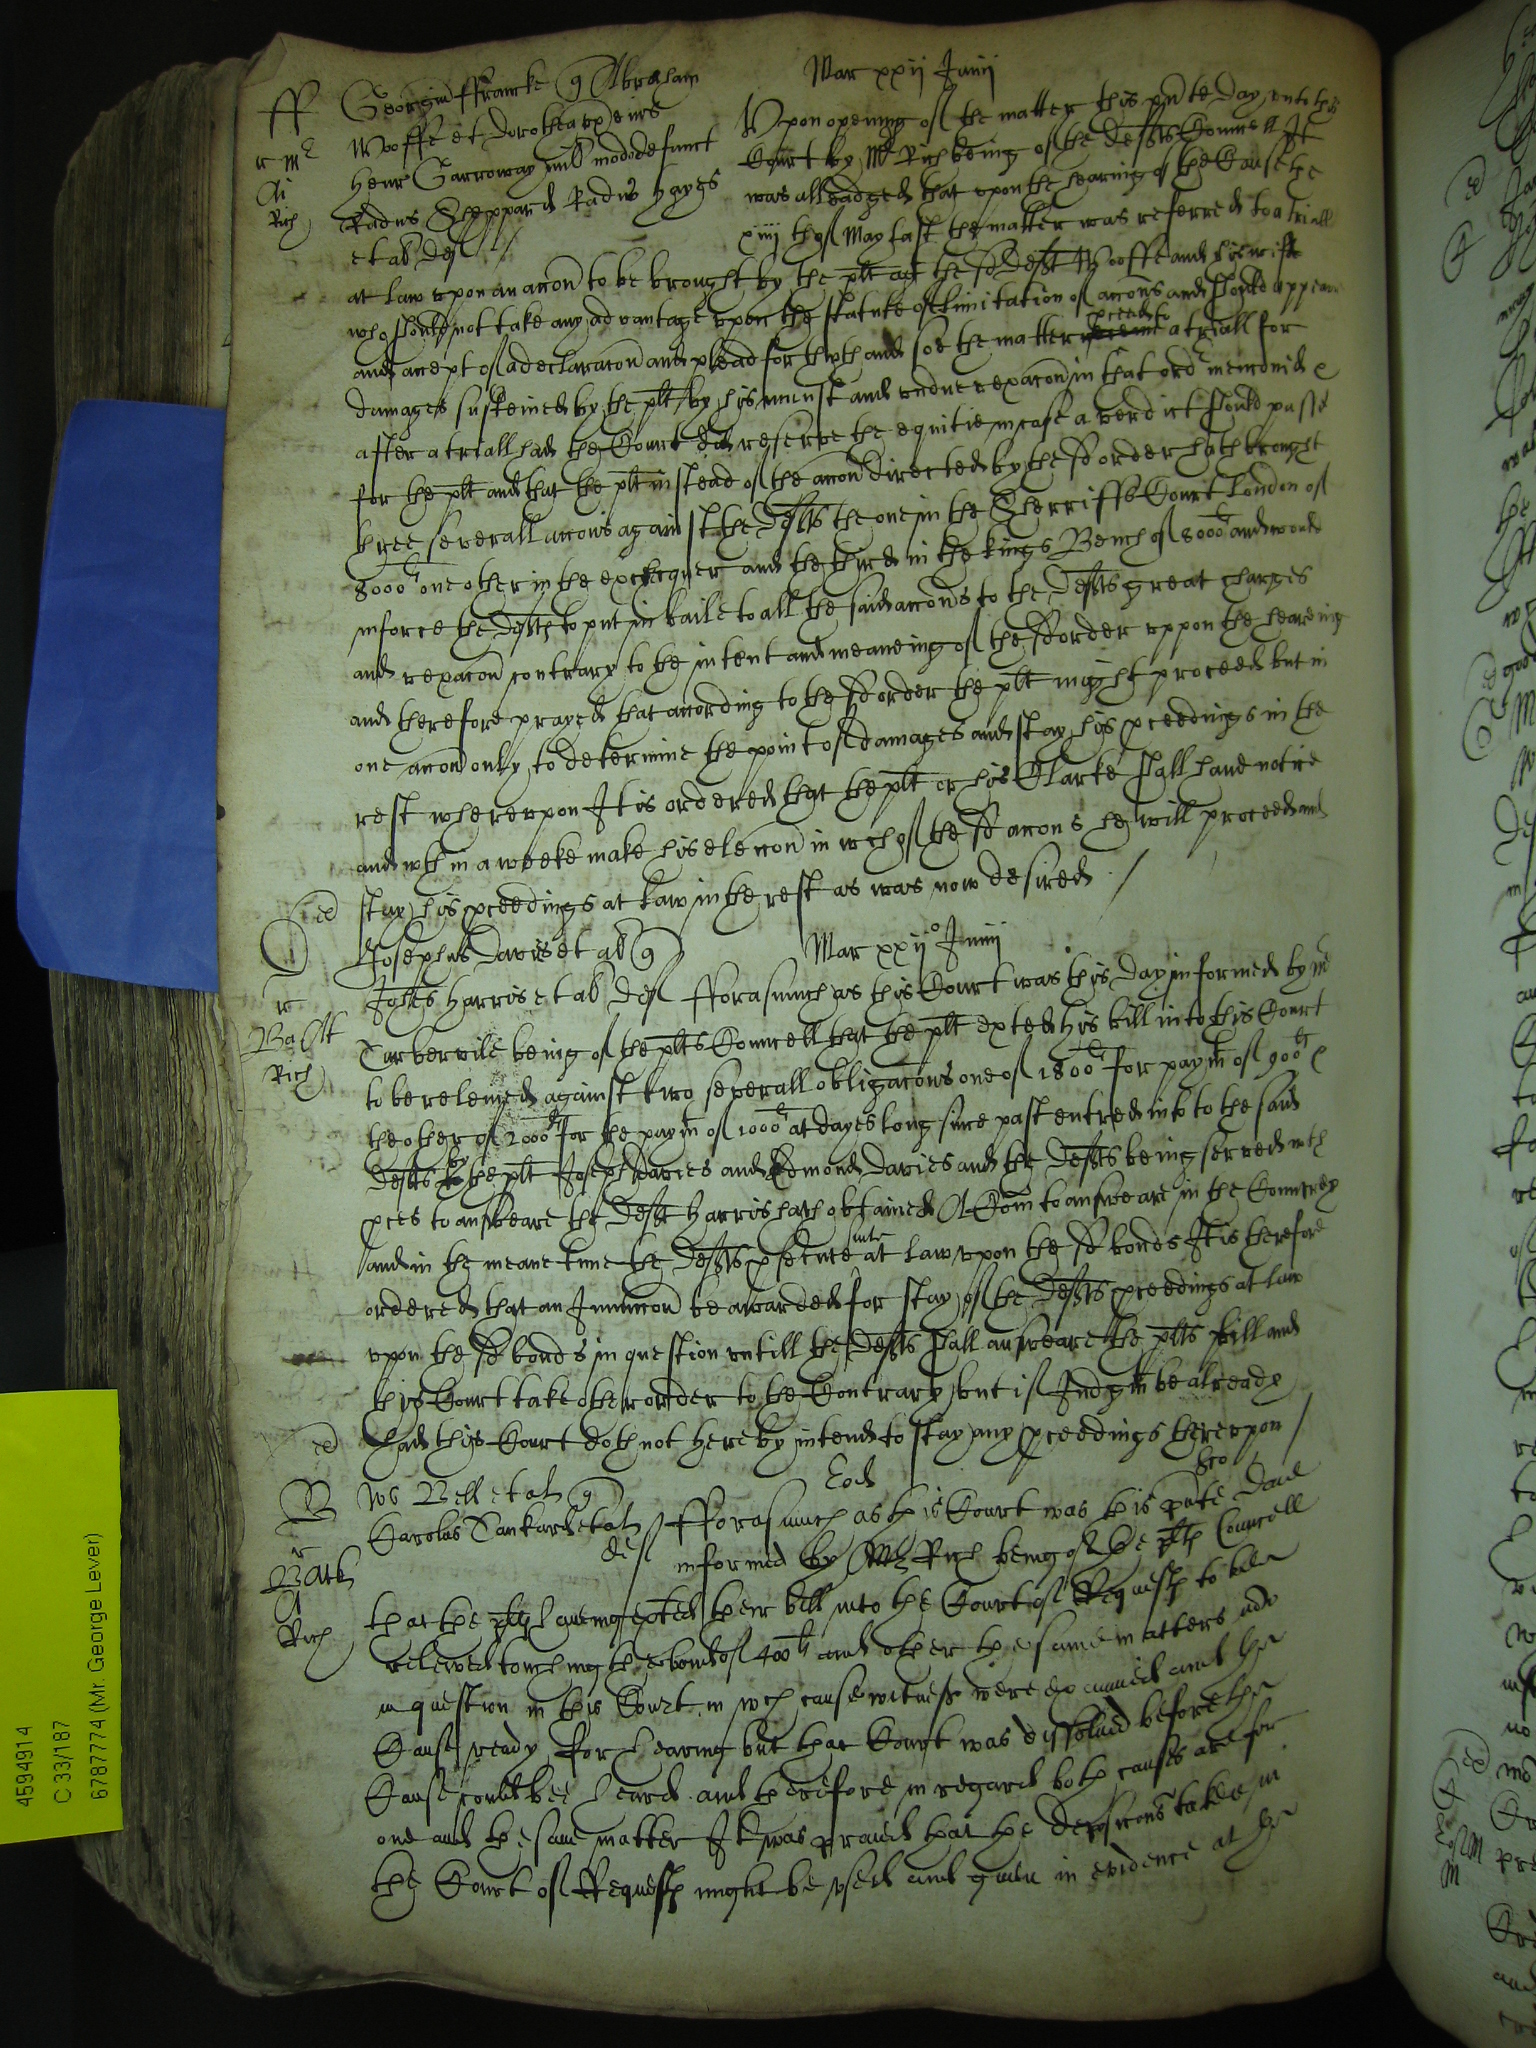 Mar xxij Junij
ff
Georgiu ffrancke q Abraham
Wooffe et Dorothea vx eius
Henr Garroway mil modo defunct
Radus Sheppard Radus
et al def
r m
Ai
Rich
Vpon opening of the matter this pnte day vnto this
Court by Mr Rich being of the defts Councell It
was alleadged that vpon the hearing of the Cause the
xiiij th of May last the matter was referred to a triall
at law vpon an accon to be brought by the plt agt the sd deft Wooffe and his wife
who should not take any advantage vpon the statute of limitation of accons and should appeare
and accept of a declaracon and plead forthwth and soe the matter proceed to a triall for
damages susteined by the plt by his vniust and vndue vexacon in that ord mencioned &
after a triall had the Court did reserve the equitie in case a verdict should passe
for the plt and that the plt instead of the accon directed by the sd order hath brought
three severall accons against the defts the one in the Sherriffs Court London of
8000li one other in the exchequer and the third in the kings Bench of 8000li and would
inforce the defts to put in baile to all the said accons to the defts great charges
and vexacon contrary to the intent and meaneing of the sd order vppon the heareing
and therefore prayed that according to the sd order the plt might proceed but in
one accon only to determine the point of damages and stay his pceedings in the
rest wherevpon It is ordered that the plt or his Clarke shall have notice
and wth in a weeke make his eleccon in wch of the sd accons he will proceed and
stay his pceedings at law in the rest as was now desired
ed
D
Josephus Davis et al q
Mar xxij o Junij
r
Ba
Rich
Johes Harris et al def fforasmuch as this Court was this day informed by mr
Turbervile being of the plts Councell that the plt exted his bill into this Court
to be releived against two severall obligacons one of 1800li for paymt of 900li &
the other of 2000li for the paymt of 1000li at dayes long since past entred into to the said
defts by the plt Joseph Davies and Edmond Davies and the defts being served wth
pces to answeare the deft Harris hath obtained A Com to answeare in the Countrey
and in the meane time the defts psecute suite at law vpon the sd bonds It is therefore
ordered that an Iniunccon be awarded for stay of the defts pceedings at law
vpon the sd bonds in question vntill the defts shall answeare the plts bill and
this Court take other order to the Contrary but if Judgmt be already
had this Court doth not hereby intend to stay any pceedings therevpon
ed
B
Ws Bell et al q
Eod
Carolus Tankard et al
def
r
A
Rich
fforasmuch as this Court was this pnte daie
informed by Mr Rich being of the plts Councell
that the plts haveing exted their bill into the Court of Requests to bee
releived touching the bond of 400li and other the same matters now
in question in this Court in wch cause witnesses were examined and the
Cause ready for hearing but that Court was dissolved before the
Cause could bee heard and therefore in regard both causes are for
one and the same matter It was praied that the deposicons taken in
the Court of Requests might be vsed and given in evidence at the
4594914
C 33/187
6787774 (Mr. George Lever)